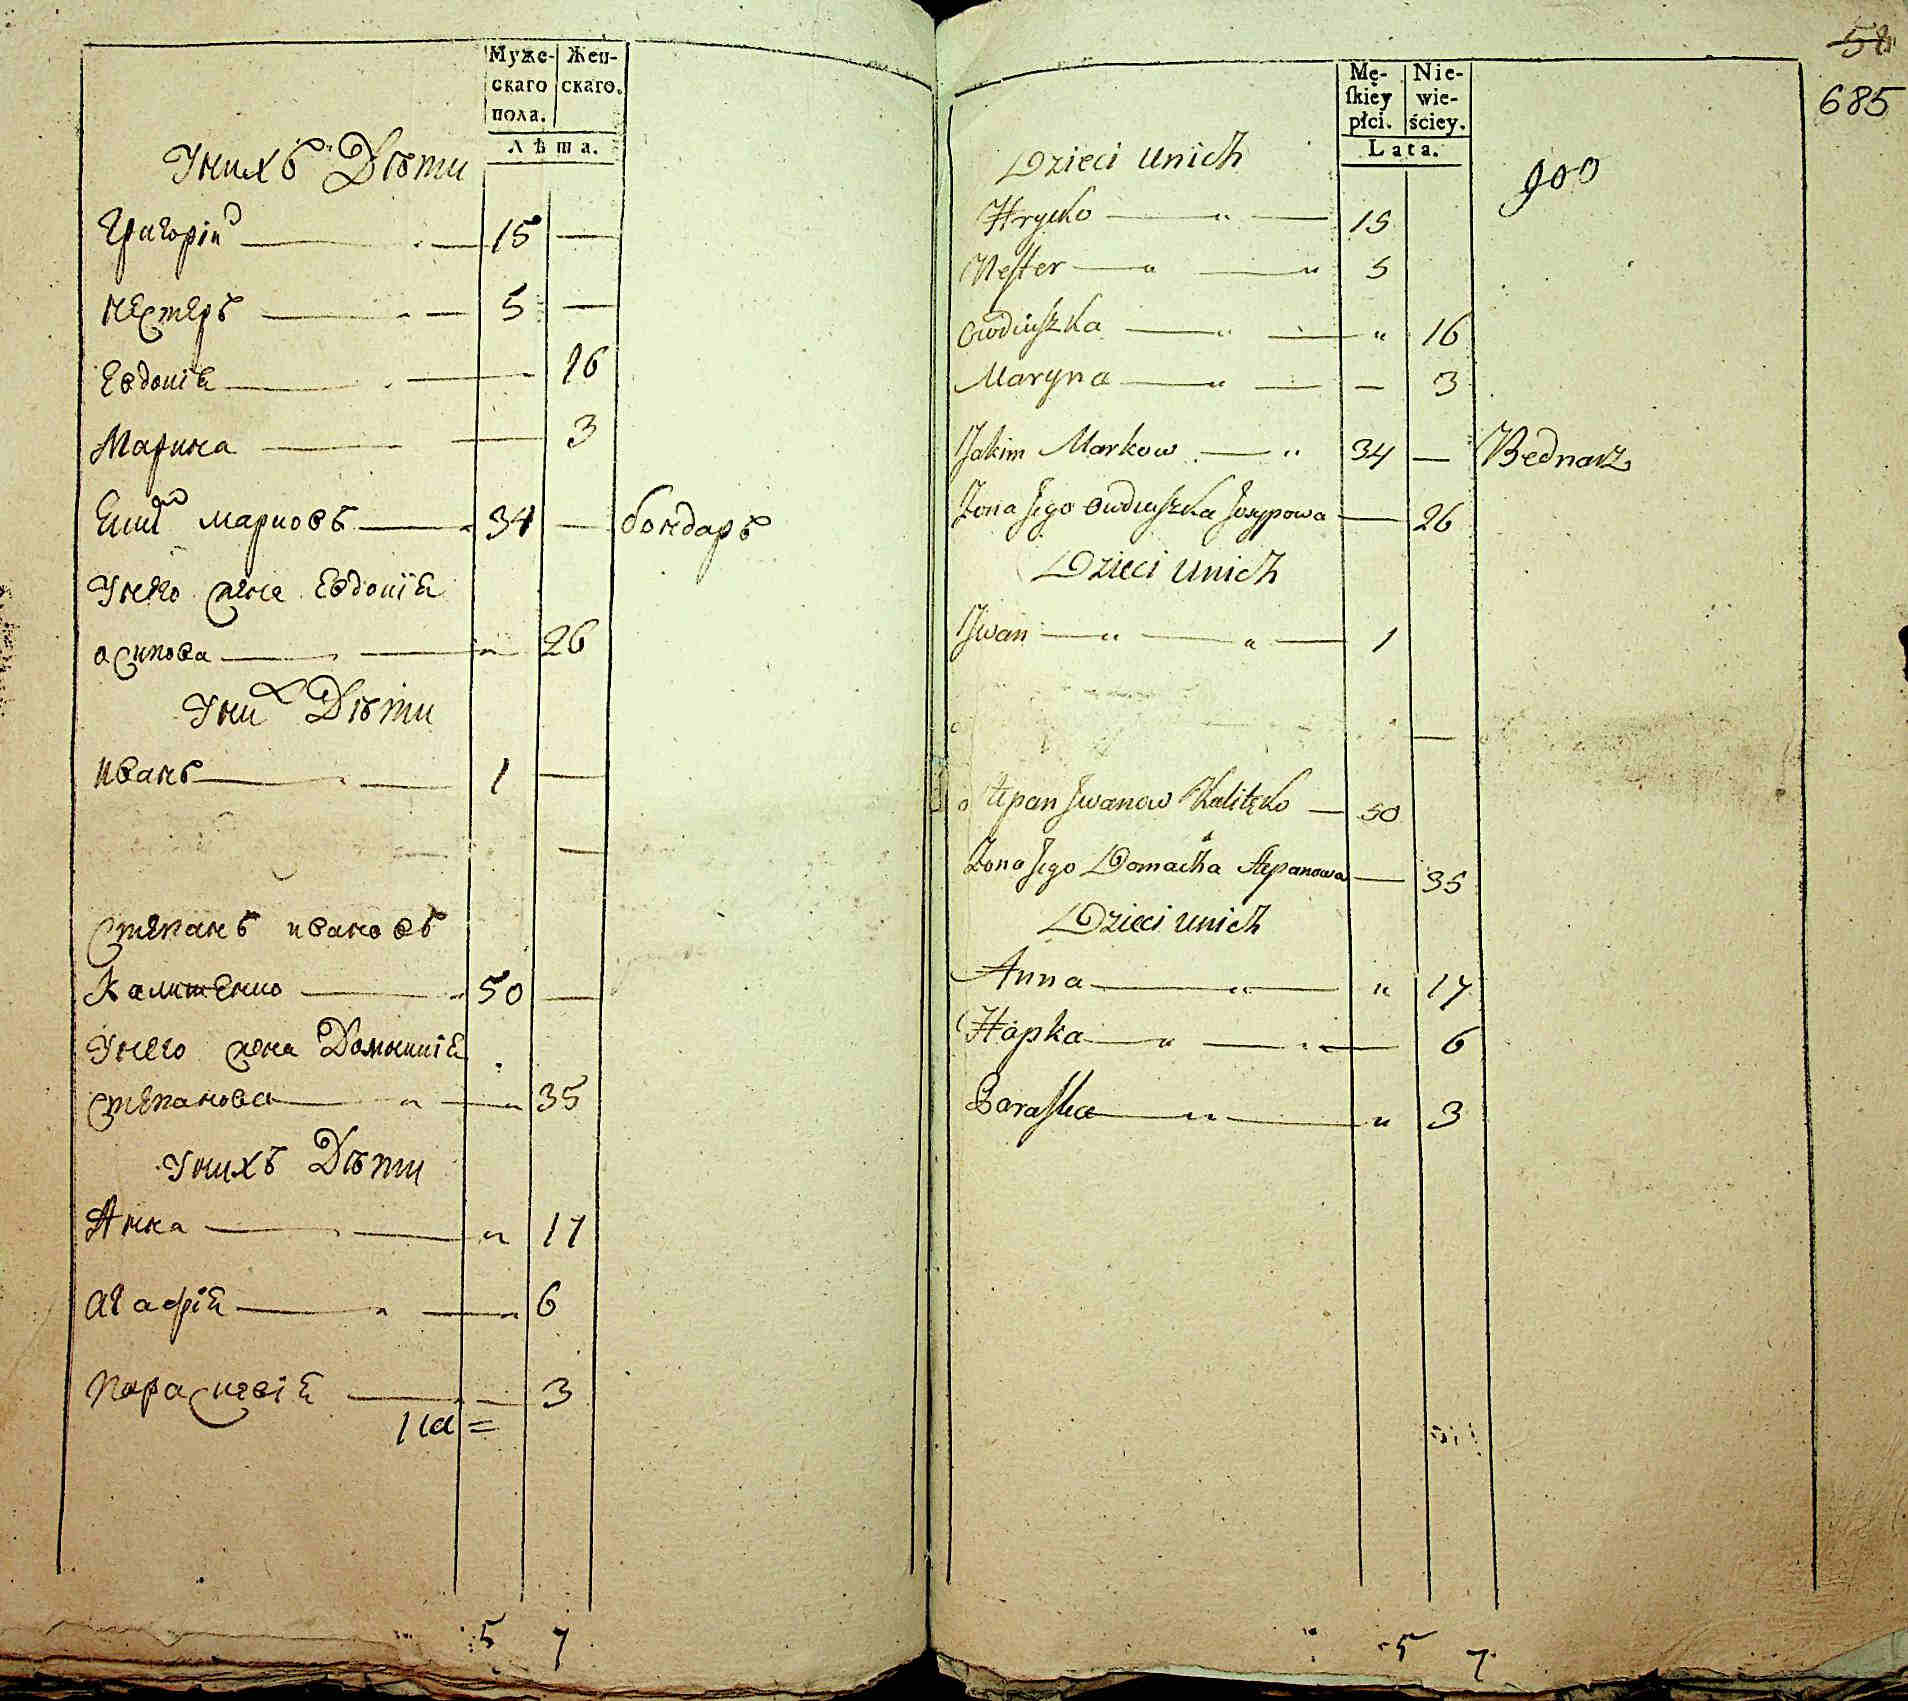 Муже-
скаго
пола.
Жен-
скаго.
Лѣта.
Унихъ Дѣти
Григорій 15 —
Нестеръ 5 —
Евдокія 16
Марина 3
Еким марковъ 34 — бондаръ
Унего жена Евдокія
осипова 26
Уних Дѣти
Иванъ 1 —
Степанъ ивановъ
Калитенко 50 —
Унего жена Домникія
степанова 35
Унихъ Дѣти
Анна 17
Агафія 6
Параскевія 3
5 7
58
685
Mę-
ſkiey
płci.
Nie-
wie-
ściey.
Lata.
900
Dzieci unich
Hrycko 15
Neſter 5
Owdiuſzka 16
Maryna — 3
Jakim Markow 34 — Bednarz
Żona Jego Owdiuſzka Josypowa — 26
Dzieci unich
Jwan 1
Stepan Jwanow Kalitęko 50
Żona Jego Domacha Stepanowa — 35
Dzieci unich
Anna 17
Hapka 6
Paraſka 3
5 7